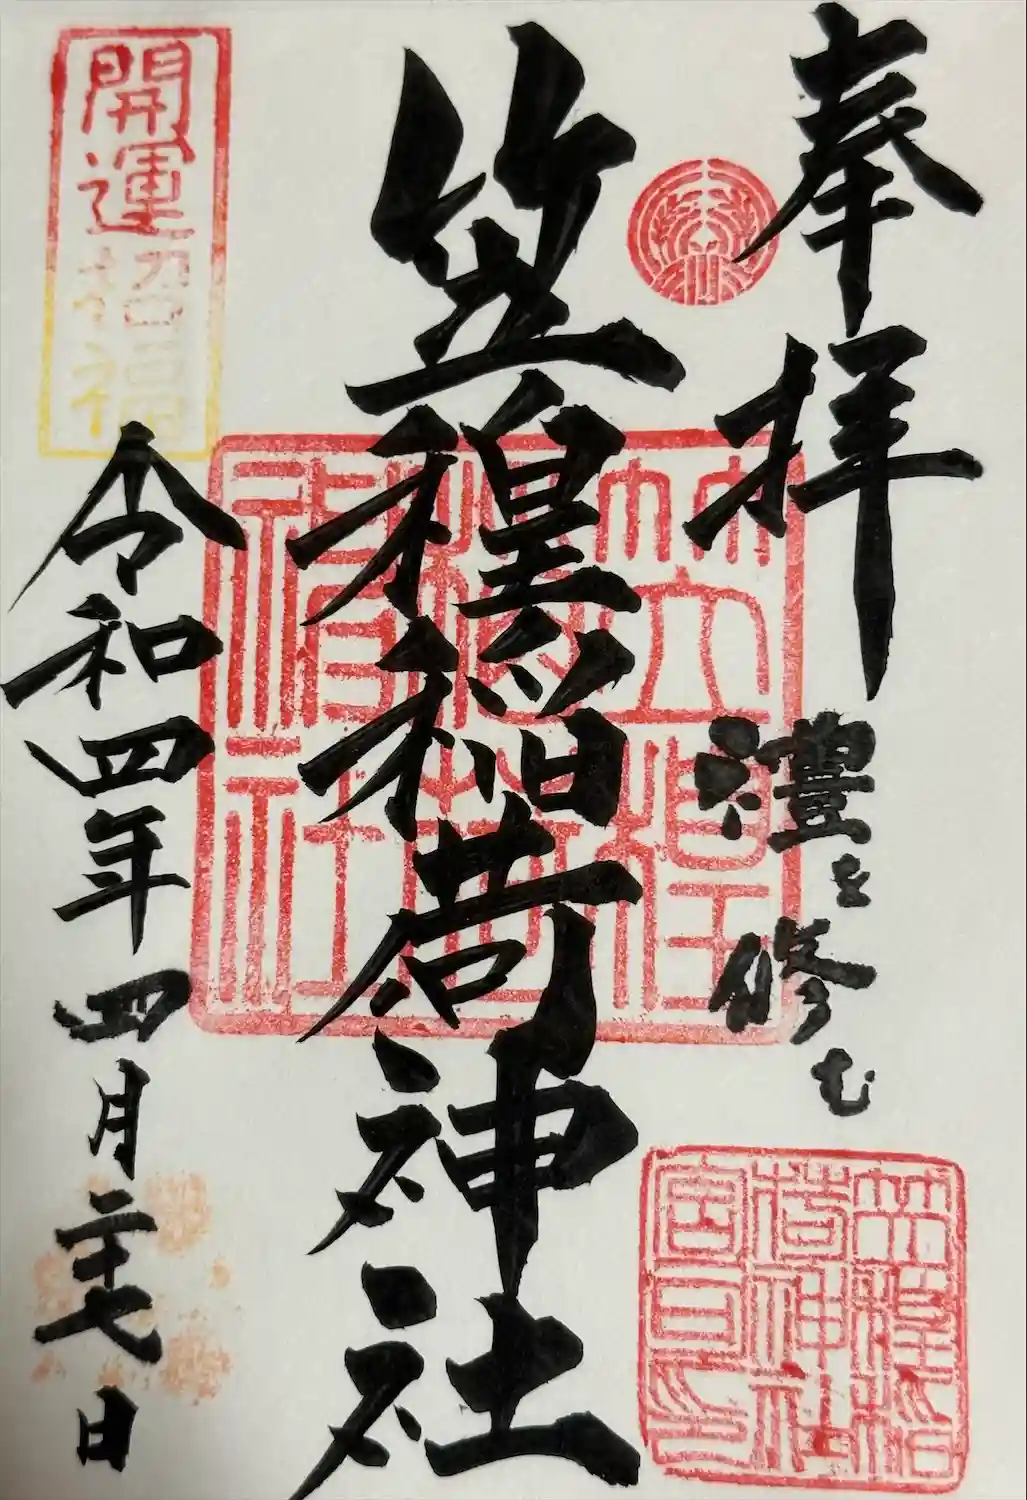 奉拝
禮を修む
笠䅣稲荷神社
開運招福
令和四年四月二十七日
笠䅣
稲荷
神社
笠䅣稲
荷神社
宮司之印